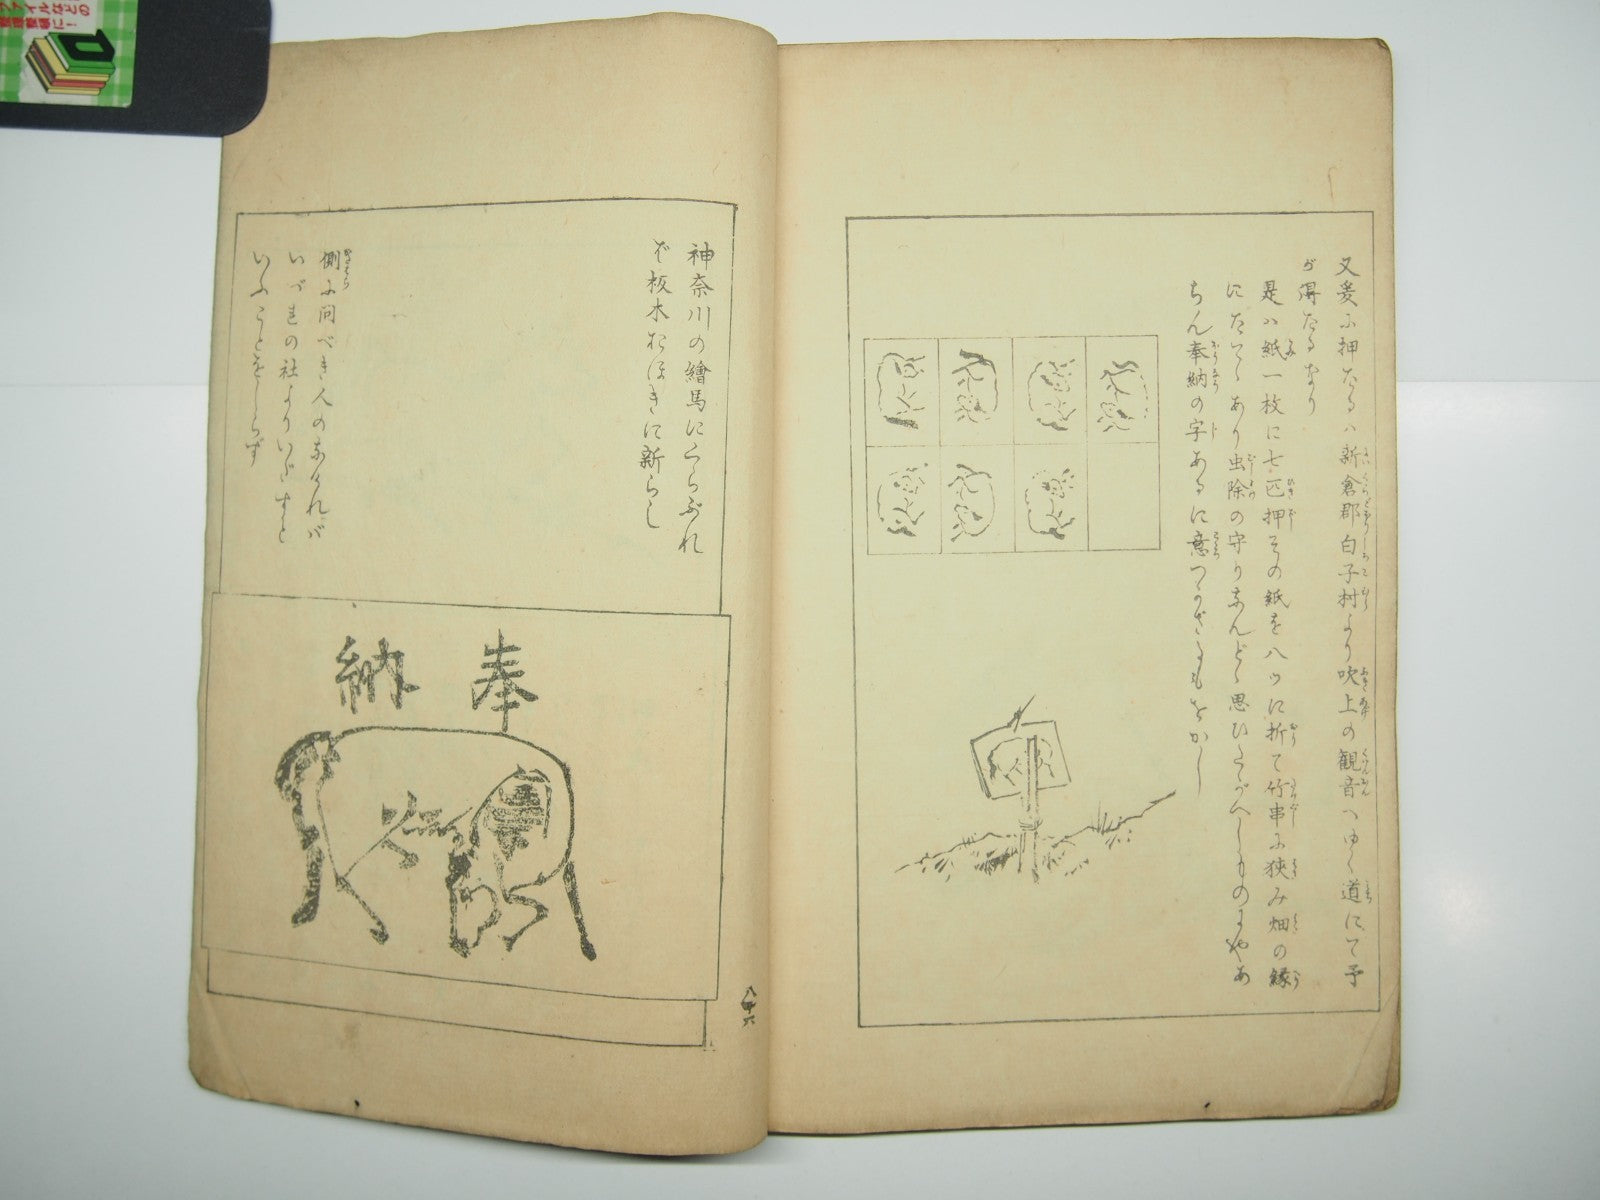 又爰に押たるハ新倉郡白子村より吹上の観音へゆく道にて予
が得たるなり
是ハ紙一枚に七匹押その紙を八ツに折て竹串に狭み畑の縁
にたてゝあり虫除の守りなんどゝ思ひたがへしものまやあ
らん奉納の字あるに意つかざるもをかし
神奈川の繪馬にくらぶれ
ば板木おほきに新らし
側に問べき人のなけれバ
いづれの社よりいだすと
いふことをしらず
奉納
八十六